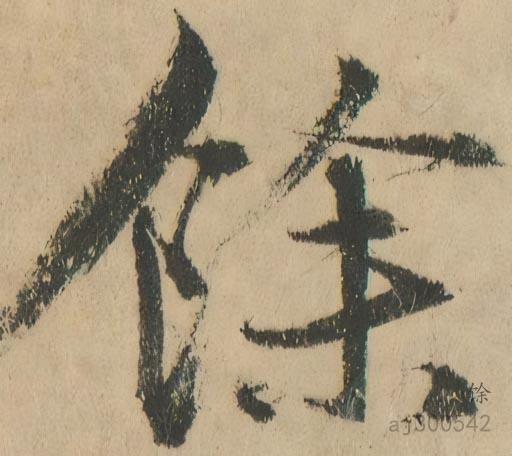 餘
aj300542